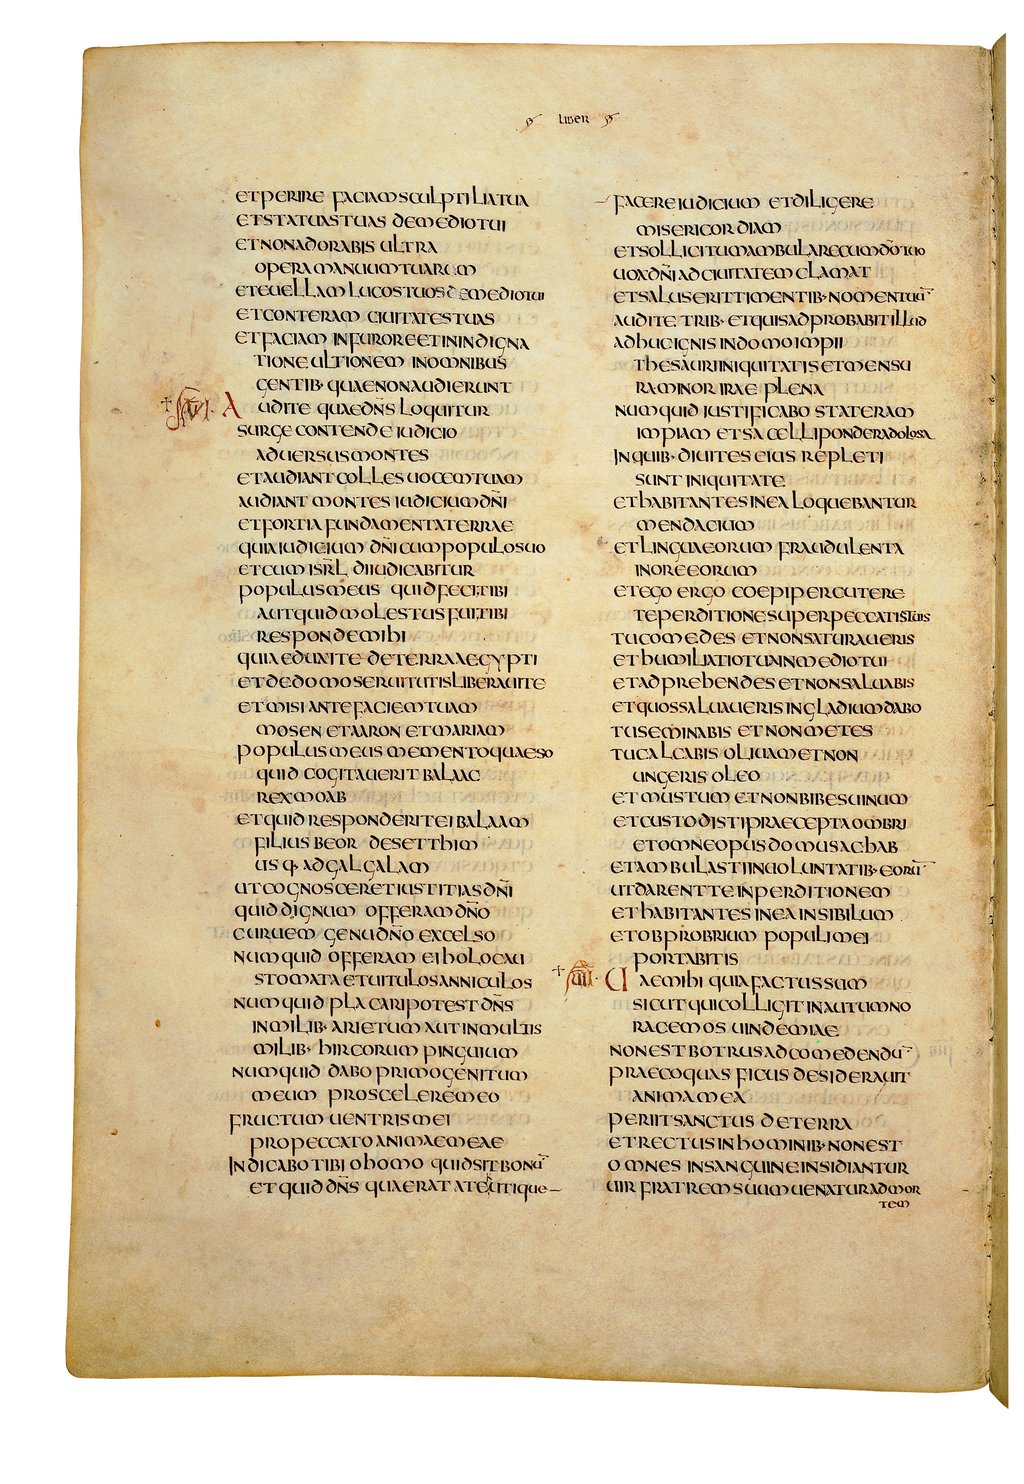 LIBER
ET PERIRE FACIAM SCULPTILIA TUA
ET STATUAS TUAS DE MEDIO TUI
ET NON ADORABIS ULTRA
OPERA MANUUM TUARUM
ET EUELLAM LUCOS TUOS DE MEDIO TUI
ET CONTERAM CIUITATES TUAS
ET FACIAM IN FURORE ET IN INDIGNA
TIONE ULTIONEM IN OMNIBUS
GENTIB· QUAE NON AUDIERUNT
VI· AUDITE QUAE DN̄S LOQUITUR
SURGE CONTENDE IUDICIO
ADUERSUS MONTES
ET AUDIANT COLLES UOCEM TUAM
AUDIANT MONTES IUDICIUM DN̄I
ET FORTIA FUNDAMENTA TERRAE
QUIA IUDICIUM DN̄I CUM POPULO SUO
ET CUM ISRL̄ DIIUDICABITUR
POPULUS MEUS QUID FECI TIBI
AUT QUID MOLESTUS FUI TIBI
RESPONDE MIHI
QUIA EDUXI TE DE TERRA AEGYPTI
ET DE DOMO SERUITUTIS LIBERAUI TE
ET MISI ANTE FACIEM TUAM
MOSEN ET AARON ET MARIAM
POPULUS MEUS MEMENTO QUAESO
QUID COGITAUERIT BALAAC
REX MOAB
ET QUID RESPONDERIT EI BALAAM
FILIUS BEOR DE SETTHIM
USQ· AD GALGALAM
UT COGNOSCERET IUSTITIAS DN̄I
QUID DIGNUM OFFERAM DN̄O
CURUEM GENU DN̄O EXCELSO
NUMQUID OFFERAM EI HOLOCAU
STOMATA ET UITULOS ANNICULOS
NUMQUID PLACARI POTEST DN̄S
IN MILIB· ARIETUM AUT IN MULTIS
MILIB· HIRCORUM PINGUIUM
NUMQUID DABO PRIMOGENITUM
MEUM PRO SCELERE MEO
FRUCTUM UENTRIS MEI
PRO PECCATO ANIMAE MEAE
INDICABO TIBI O HOMO QUID SIT BONU̅
ET QUID DN̄S QUAERAT A TE UTIQUE
FACERE IUDICIUM ET DILIGERE
MISERICORDIAM
ET SOLLICITUM AMBULARE CUM DO̅ TUO
UOX DN̄I AD CIUITATEM CLAMAT
ET SALUS ERIT TIMENTIB· NOMEN TUU̅
AUDITE TRIB· ET QUIS ADPROBABIT ILLUD
ADHUC IGNIS IN DOMO IMPII
THESAURI INIQUITATIS ET MENSU
RA MINOR IRAE PLENA
NUMQUID IUSTIFICABO STATERAM
IMPIAM ET SACELLI PONDERA DOLOSA
IN QUIB· DIUITES EIUS REPLETI
SUNT INIQUITATE
ET HABITANTES IN EA LOQUEBANTUR
MENDACIUM
ET LINGUA EORUM FRAUDULENTA
IN ORE EORUM
ET EGO ERGO COEPI PERCUTERE
TE PERDITIONE SUPER PECCATIS TUIS
TU COMEDES ET NON SATURAUERIS
ET HUMILIATIO TUA IN MEDIO TUI
ET ADPREHENDES ET NON SALUABIS
ET QUOS SALUAUERIS IN GLADIUM DABO
TU SEMINABIS ET NON METES
TU CALCABIS OLIUAM ET NON
UNGERIS OLEO
ET MUSTUM ET NON BIBES UINUM
ET CUSTODISTI PRAECEPTA OMBRI
ET OMNE OPUS DOMUS ACHAB
ET AMBULASTI IN UOLUNTATIB· EORU̅
UT DARENT TE IN PERDITIONEM
ET HABITANTES IN EA IN SIBILUM
ET OBPROBRIUM POPULI MEI
PORTABITIS
VII· UAE MIHI QUIA FACTUS SUM
SICUT QUI COLLIGIT IN AUTUMNO
RACEMOS UINDEMIAE
NON EST BOTRUS AD COMEDENDU̅
PRAECOQUAS FICUS DESIDERAUIT
ANIMA MEA
PERIIT SANCTUS DE TERRA
ET RECTUS IN HOMINIB· NON EST
OMNES IN SANGUINE INSIDIANTUR
UIR FRATREM SUUM UENATUR AD MOR
TEM